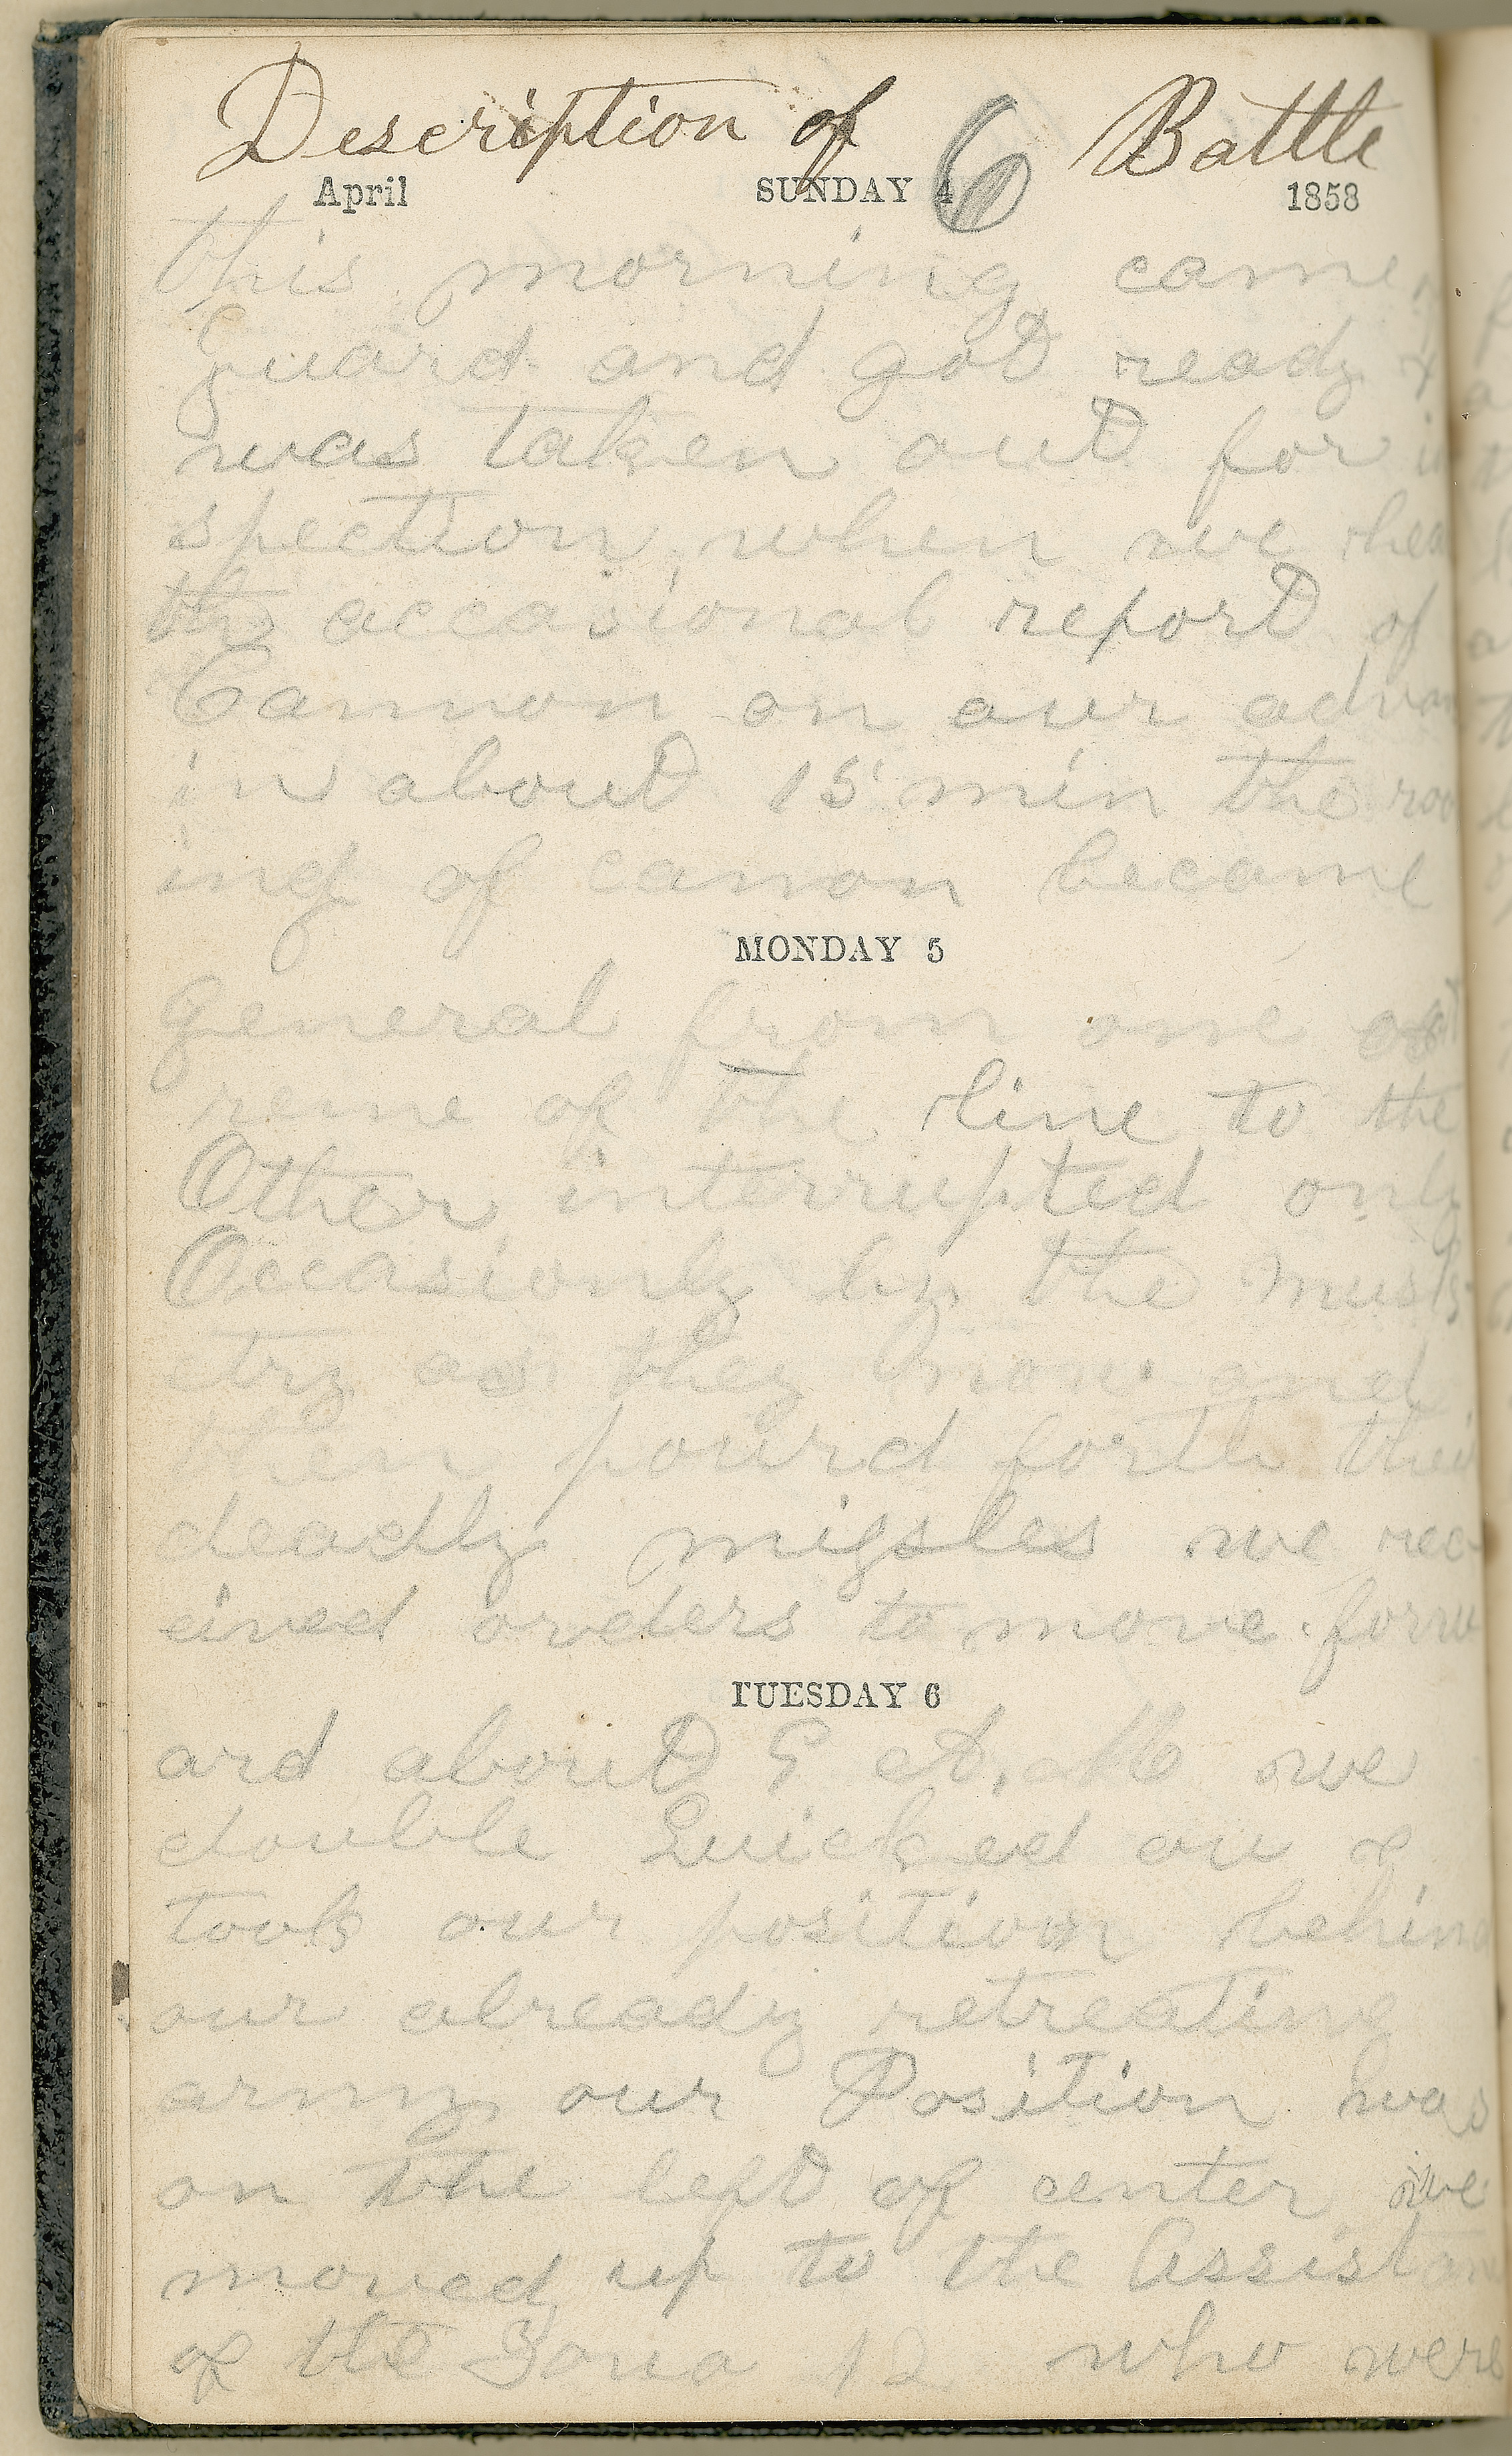 Description of Battle
April SUNDAY 6 1858
this morning came
guard and got ready &
was taken out for in
spection, when we hea
the accasional report of
Cannon on our advan
in about 15 min the roa
ing of canon became
MONDAY 5
general from one
of the line to the
Other interrupted only
Occasionly by the musk
etry as they now and
then pourd forth their
deadly missles we rec
eived orders to move forw
TUESDAY 6
ard about 9 A. M we
double Quicked on &
took our position behind
our already retreating
army our Position was
on the left of center we
moved up to the Assistan
of the Iowa 12 who were